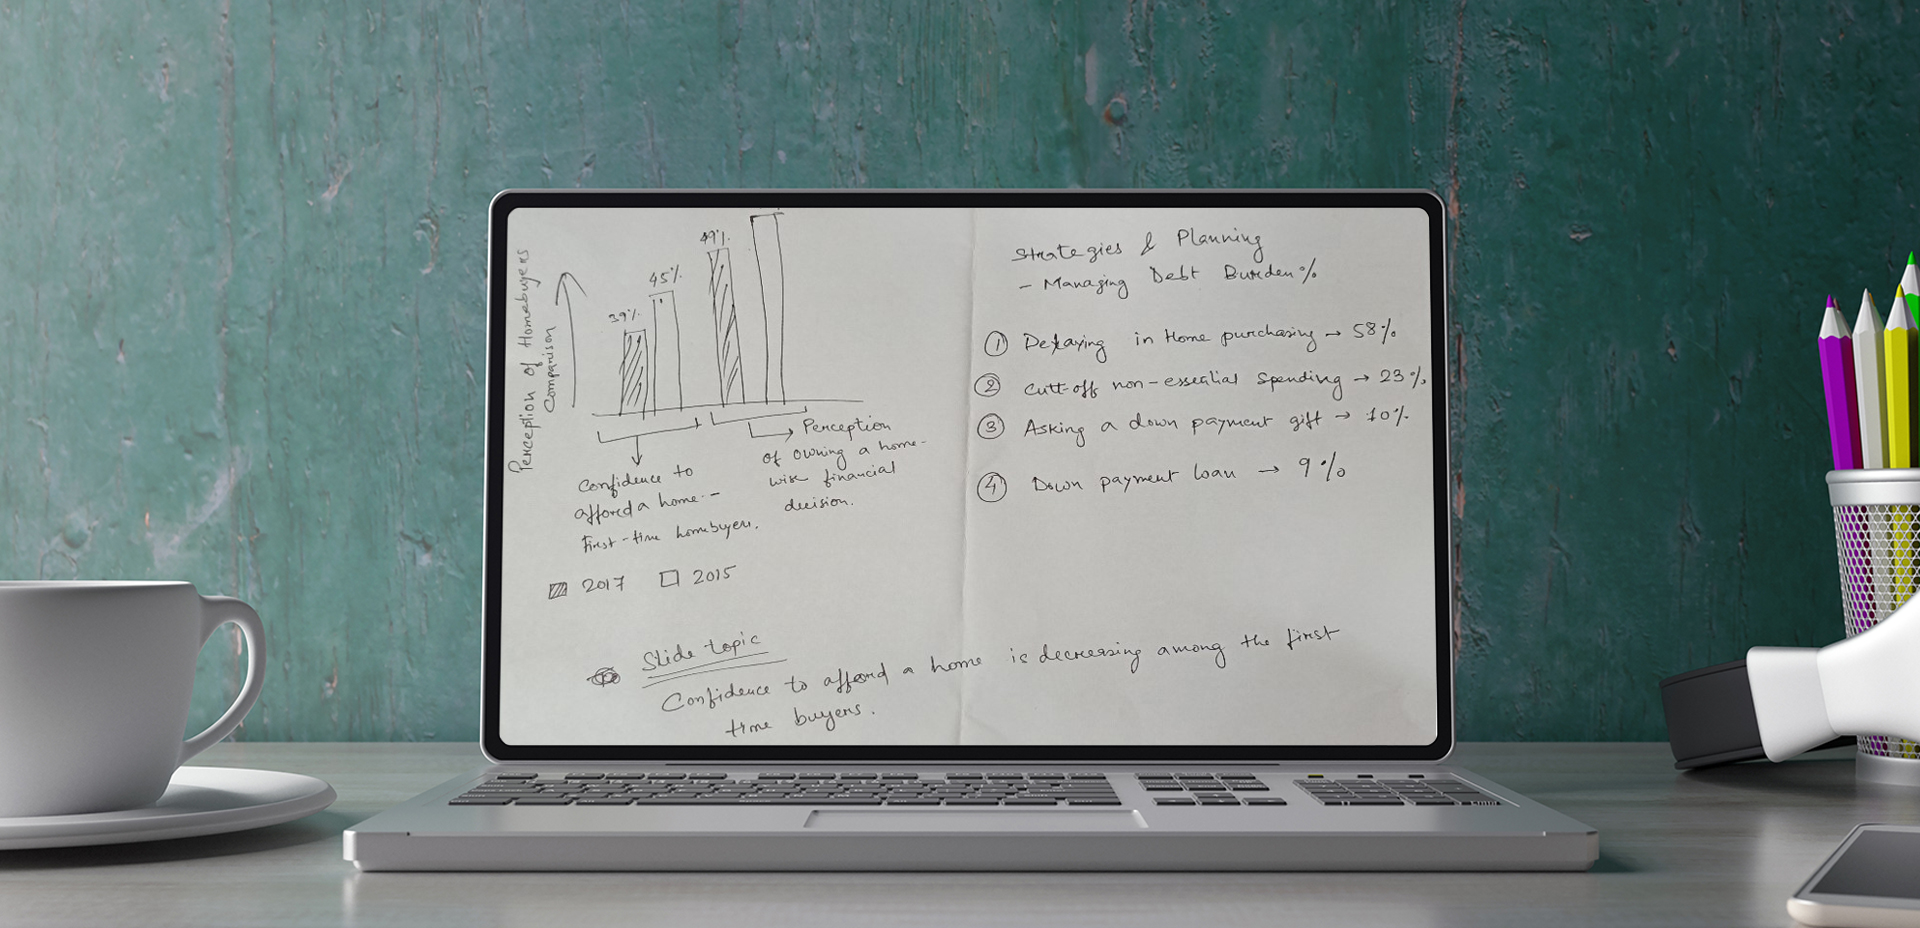 Perception of Homebuyers
Comparison
39%
45%
49%
Confidence to
afford a home -
First-time homebuyers.
Perception
of owning a home -
wise financial
decision.
2017
2015
Strategies & Planning
- Managing Debt Burden %
1 Delaying in Home purchasing → 58%
2 Cutt-off non-essential Spending → 23%
3 Asking a down payment gift → 10%
4 Down payment loan → 9%
Slide topic
Confidence to afford a home is decreasing among the first
time buyers.